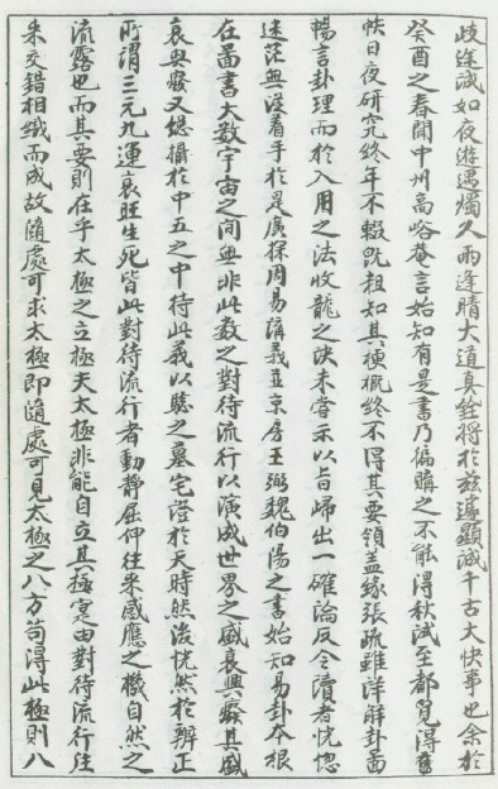 歧途誠如夜遊遇燭久雨逢晴大道真銓將於茲遽顯誠千古大快事也余於
癸酉之春聞中州高峪菴言始知有是書乃徧購之不能得秋試至都覓得舊
帙日夜研究終年不輟既粗知其梗概終不得其要領盖緣張疏雖詳解卦畵
暢言卦理而於入用之法收龍之訣未嘗示以旨歸出一確論反令讀者恍惚
迷茫無從着手於是廣探周易講義並京房王弼魏伯陽之書始知易卦本根
在啚書大数宇宙之间無非此数之對待流行以演成世界之盛衰興廢其盛
衰興廢又總攝於中五之中待此義以驗之墓宅證於天時然後恍然於辨正
所謂三元九運衰旺生死皆此對待流行者動靜屈伸往来感應之機自然之
流露也而其要則在乎太極之立極夫太極非能自立其極寔由對待流行往
来交錯相織而成故隨處可求太極即隨處可見太極之八方苟得此極則八